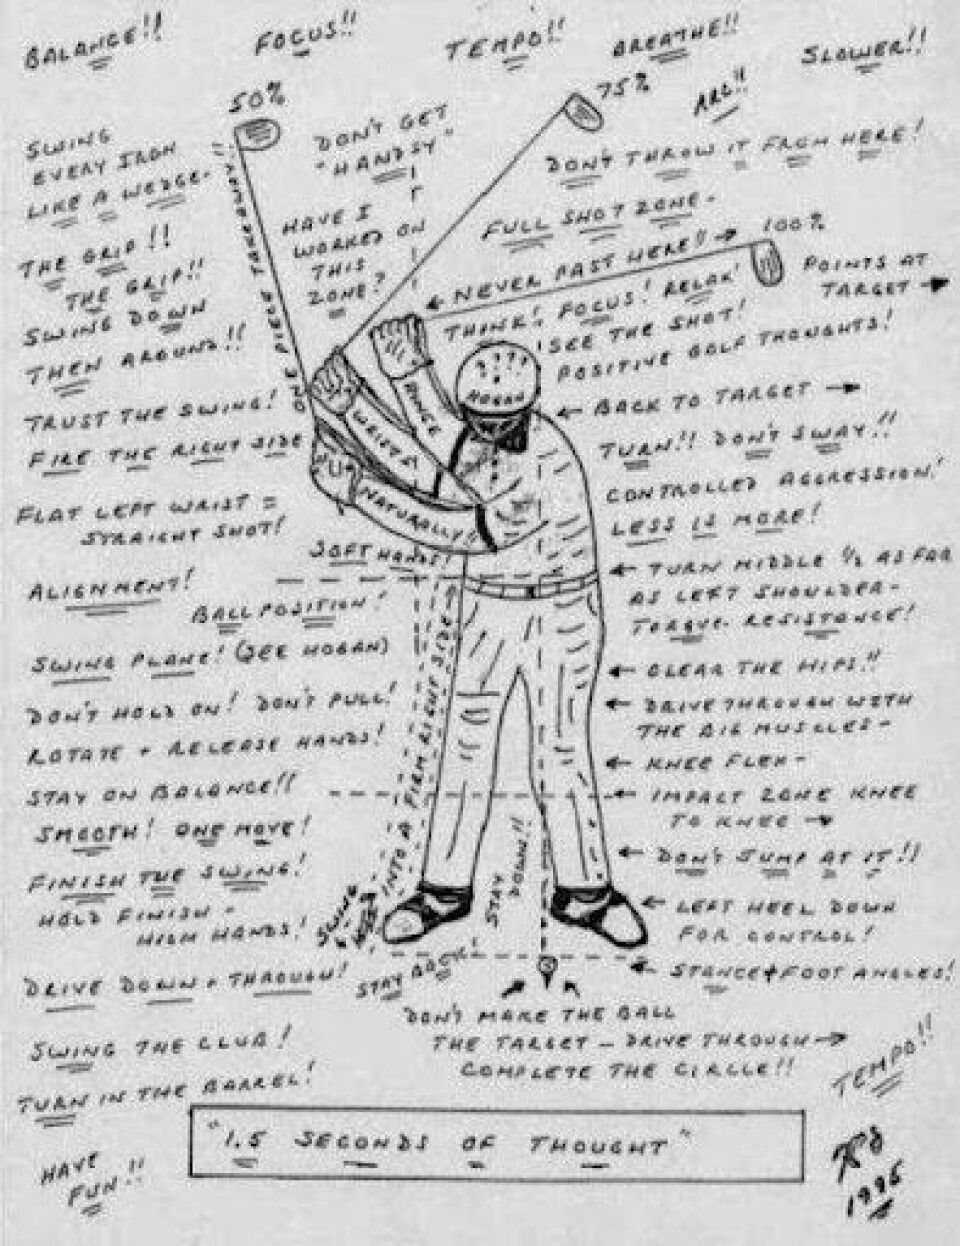 BALANCE!!
FOCUS!!
TEMPO!!
BREATHE!!
SLOWER!!
50%
75%
ARC!!
SWING
EVERY IRON
LIKE A WEDGE-
DON'T GET
"HANDSY"
DON'T THROW IT FROM HERE!
ONE PIECE TAKEAWAY!!
HAVE I
WORKED ON
THIS
ZONE?
FULL SHOT ZONE-
100%
NEVER PAST HERE!!
POINTS AT
TARGET
THE GRIP!!
THE GRIP!!
SWING DOWN
THEN AROUND!!
THINK! FOCUS! RELAX!
SEE THE SHOT!
POSITIVE GOLF THOUGHTS!
????
HOGAN
HINGE
WRISTS
NATURALLY!!
TRUST THE SWING!
FIRE THE RIGHT SIDE
FLAT LEFT WRIST =
STRAIGHT SHOT!
BACK TO TARGET
TURN!! DON'T SWAY!!
CONTROLLED AGGRESSION!
LESS IS MORE!
SOFT HANDS!
ALIGNMENT!
BALL POSITION!
TURN MIDDLE 1/2 AS FAR
AS LEFT SHOULDER-
TORQUE-RESISTANCE!
SWING PLANE! (SEE HOGAN)
CLEAR THE HIPS!!
DON'T HOLD ON! DON'T PULL!
DRIVE THROUGH WITH
THE BIG MUSCLES-
ROTATE + RELEASE HANDS!
KNEE FLEX-
STAY ON BALANCE!!
IMPACT ZONE KNEE
TO KNEE
SMOOTH! ONE MOVE!
FINISH THE SWING!
HOLD FINISH-
HIGH HANDS!
SWING
INTO A FIRM RIGHT SIDE
STAY
DOWN!!
DON'T JUMP AT IT!!
LEFT HEEL DOWN
FOR CONTROL!
STAY BACK!
STANCE + FOOT ANGLES!
DRIVE DOWN + THROUGH!
DON'T MAKE THE BALL
THE TARGET - DRIVE THROUGH
COMPLETE THE CIRCLE!!
SWING THE CLUB!
TURN IN THE BARREL!
TEMPO!!
"1.5 SECONDS OF THOUGHT"
HAVE
FUN!!
1995